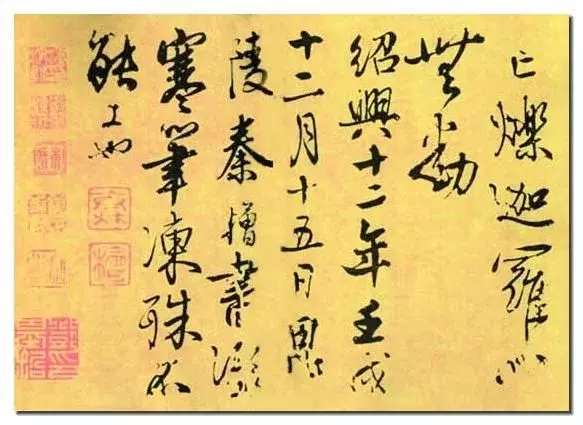 亡爍迦羅心
無動
紹興十二年壬戌
十二月十五日毗
陵秦檜書凝
寒筆凍殊不
能工也